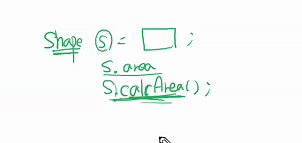 Shape s = ;
s.area
s.calcArea();